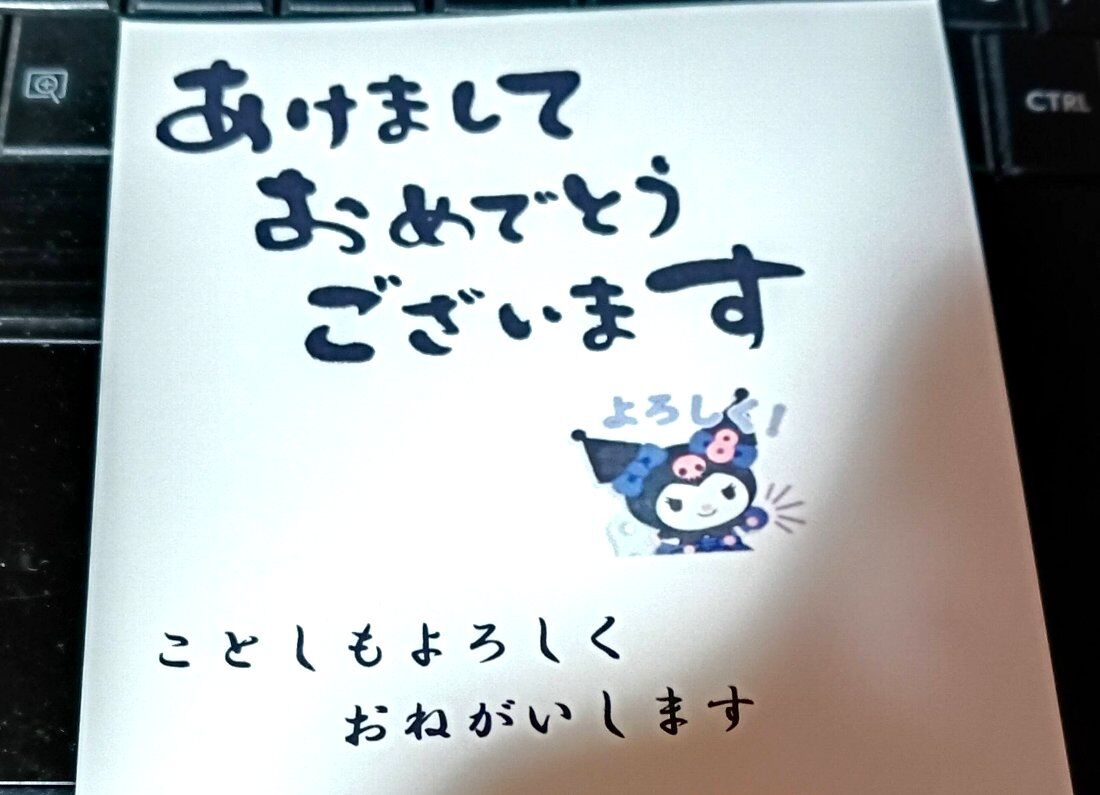 あけまして
おめでとう
ございます
よろしく!
ことしもよろしく
おねがいします
CTRL